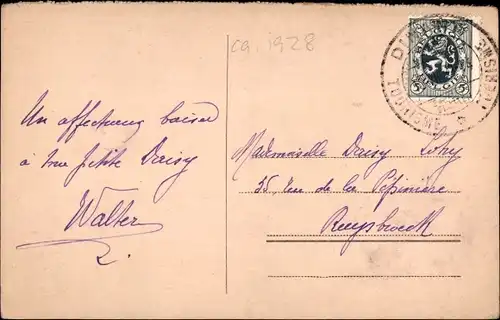 ca. 1928
Un affectueux baiser
à ma petite Daisy
Walter
Mademoiselle Daisy
35, rue de la Pépinière
Ruysbroeck
DINANT
TOURISME